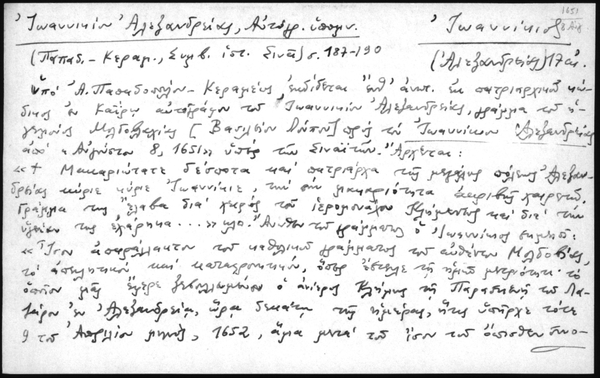 Ἰωαννικίου Ἀλεξανδρείας, Αὐτόγρ. ὑπομν. Ἰωαννίκιος 1651
(Παπαδ.-Κεραμ., Συμβ. ἱστ. Σινᾶ) σ. 187-190 (Ἀλεξανδρείας) 17 αἰ.
Ὑπὸ Ἀ. Παπαδοπούλου-Κεραμέως ἐκδίδεται ἐκ πατριαρχικοῦ κώ-
δικος ἐν Καΐρῳ αὐτόγραφον τοῦ Ἰωαννικίου Ἀλεξανδρείας, γράμμα τοῦ ἡ-
γεμόνος Μολδοβλαχίας [Βασιλείου Λούπου] πρὸς τὸν Ἰωαννίκιον Ἀλεξανδρείας
ἀπὸ "Αὐγούστου 8, 1651" ὑπὲρ τῶν Σιναϊτῶν. Ἄρχεται:
«+ Μακαριώτατε δέσποτα καὶ πατριάρχα τῆς μεγάλης πόλεως Ἀλεξαν-
δρείας κύριε κύριε Ἰωαννίκιε, τὴν σὴν μακαριότητα ἀκριβῶς χαιρετῶ.
Γράμμα της ἔλαβα διὰ χειρὸς τοῦ ἱερομονάχου Κλήμεντος καὶ διὰ τὴν
ὑγείαν της ἐχάρηκα ...» κλπ. Ἄνωθεν τοῦ γράμματος ὁ Ἰωαννίκιος σημειοῖ:
«Ἴσον ἀπαράλλακτον τοῦ καθολικοῦ γράμματος τοῦ αὐθέντου Μολδοβίας,
τὸ ἀσκεπτικὸν καὶ καταχρονικόν, ὅπερ ἔστειλε τῇ ἡμῶν μετριότητι· τὸ
ὁποῖον μᾶς ἔφερε ξεβουλλωμένον ὁ ἀνίερος Κλήμης τῇ Παρασκευῇ τοῦ Λα-
ζάρου ἐν Ἀλεξανδρείᾳ, ὥρᾳ δεκάτῃ τῆς ἡμέρας, ἥτις ὑπῆρχε τότε
9 τοῦ Ἀπριλίου μηνός, 1652, ἅμα μετὰ τοῦ ἴσου τοῦ ὄπισθεν συνο-